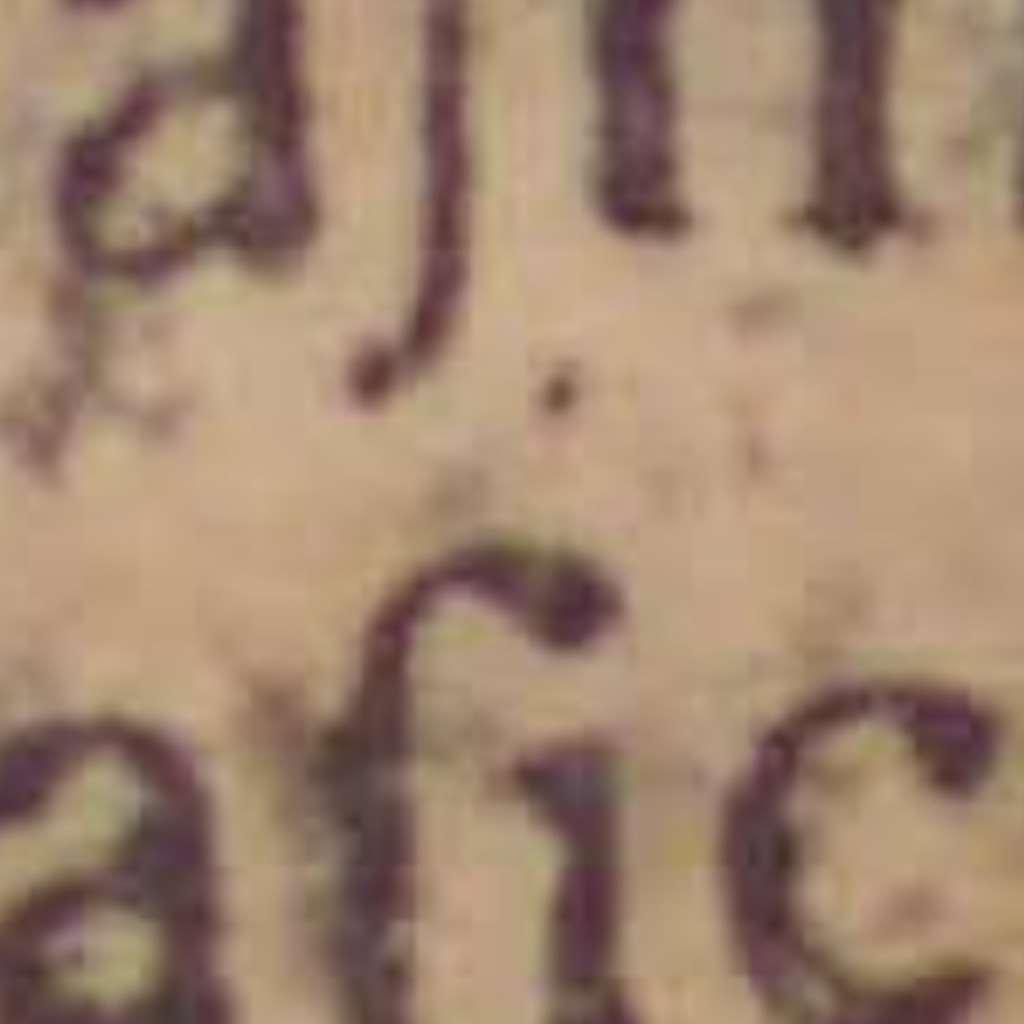 ajn
aſic